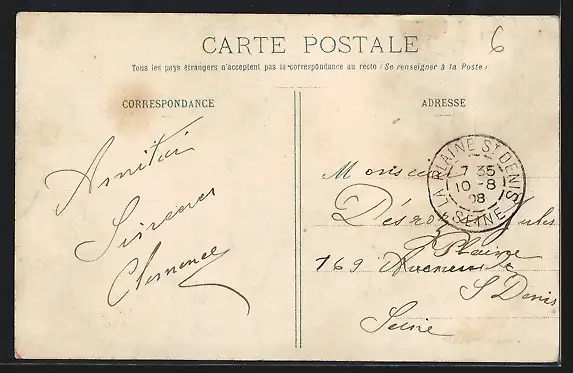 CARTE POSTALE
Tous les pays étrangers n'acceptent pas la correspondance au recto (Se renseigner à la Poste)
6
CORRESPONDANCE
ADRESSE
Sincères
Clemence
Monsieur
Jules
LA PLAINE ST DENIS
7 35
10 - 8
08
SEINE
169
Plaine
S Denis
Seine